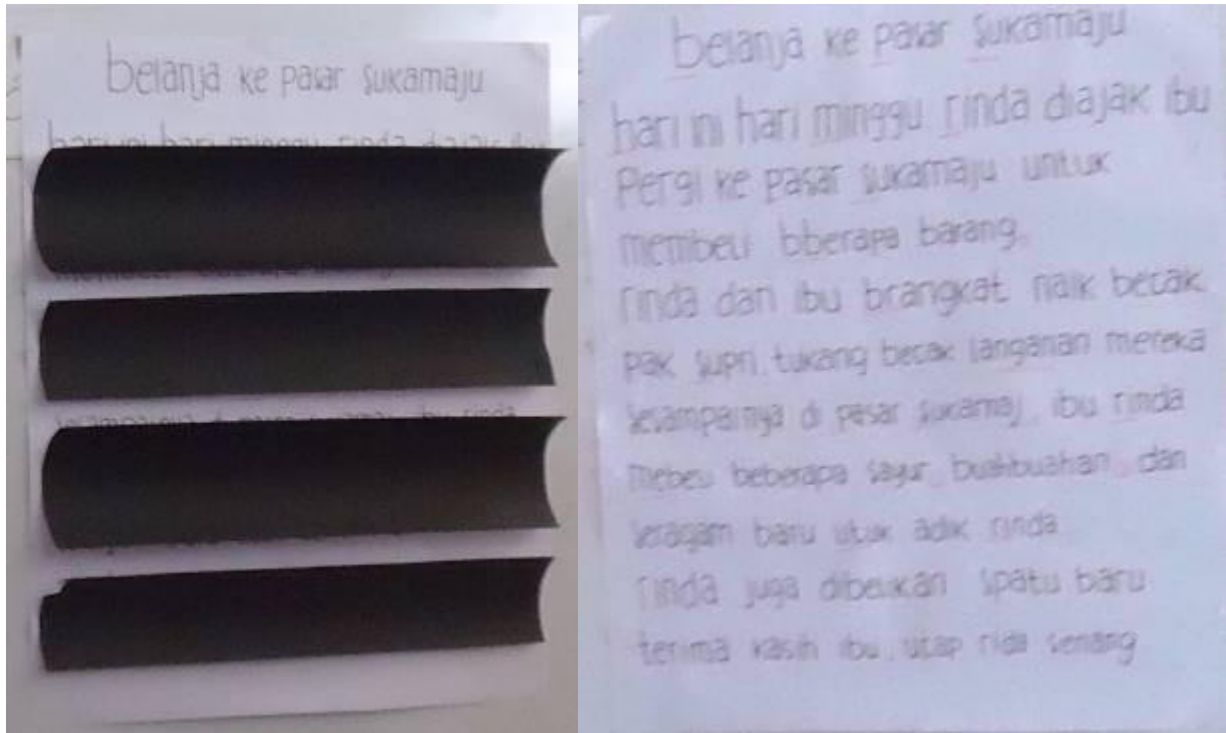 belanja ke pasar sukamaju
hari ini hari minggu rinda diajak
belanja ke pasar sukamaju
hari ini hari minggu rinda diajak ibu
Pergi ke pasar sukamaju untuk
membeli bberapa barang.
rinda dan ibu brangkat naik becak
pak supri, tukang becak langanan mereka
sesampainya di pasar sukamaj, ibu rinda
mebeli beberapa sayur, buahbuahan, dan
seragam baru utuk adik rinda
rinda juga dibelikan spatu baru
terima kasih ibu, ucap rida senang